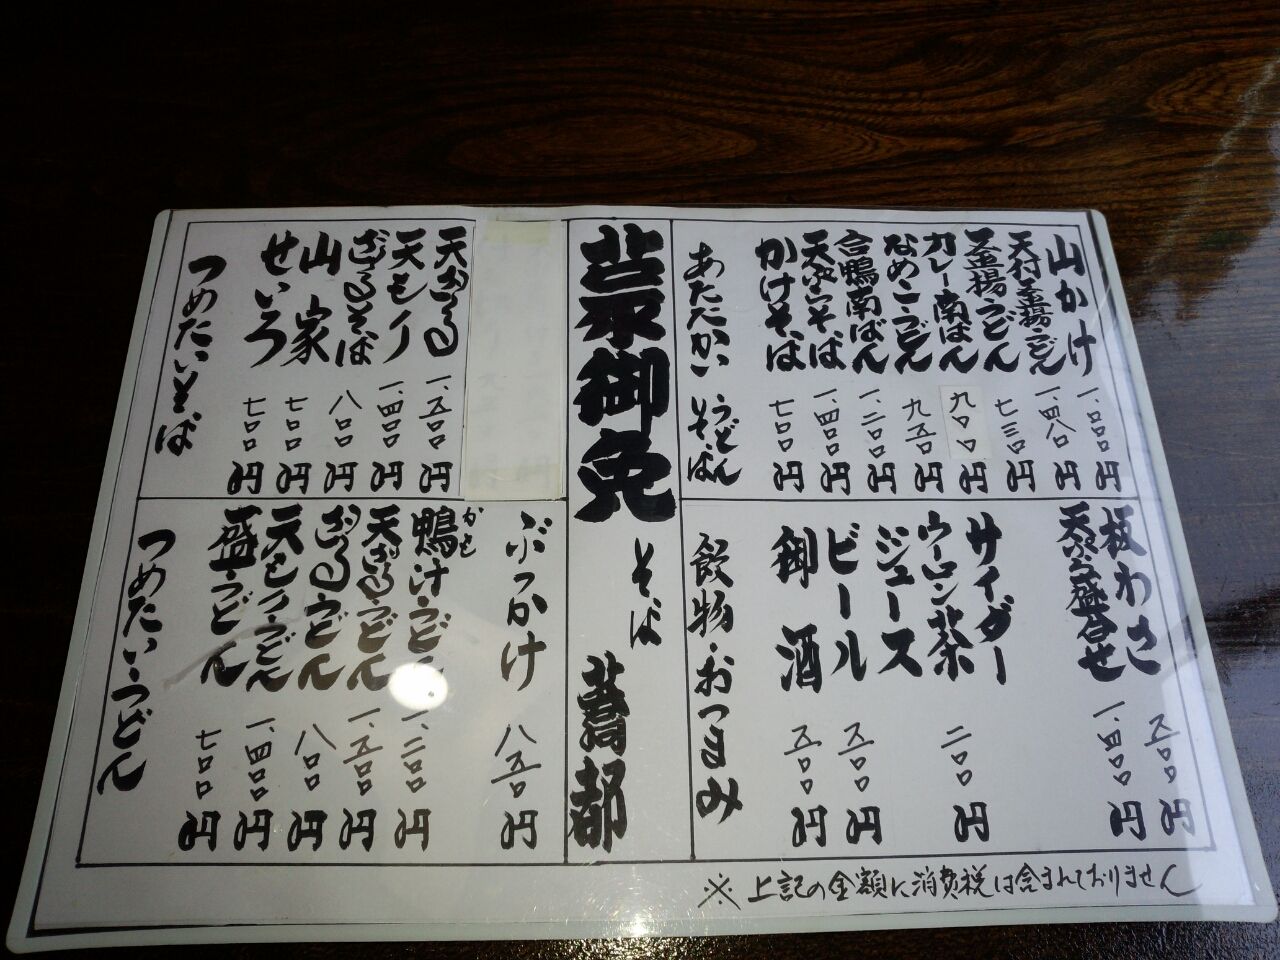 山かけ 一、〇〇〇円
天付釜揚うどん 一、四八〇円
釜揚うどん 七三〇円
カレー南ばん 九〇〇円
なめこうどん 九五〇円
合鴨南ばん 一、二〇〇円
天ぷらそば 一、四〇〇円
かけそば 七〇〇円
あたたかい うどん そば
板わさ 五〇〇円
天ぷら盛合せ 一、四〇〇円
サイダー
ウーロン茶 二〇〇円
ジュース
ビール 五〇〇円
御酒 五〇〇円
飲物・おつまみ
御免
そば 蕎都
天ざる 一、五〇〇円
天もり 一、四〇〇円
ざるそば 八〇〇円
山家 七〇〇円
せいろ 七〇〇円
つめたいそば
ぶっかけ 八五〇円
鴨汁うどん 一、二〇〇円
かも
天ざるうどん 一、五〇〇円
ざるうどん 八〇〇円
天もりうどん 一、四〇〇円
盛うどん 七〇〇円
つめたいうどん
※上記の金額に消費税は含まれておりません